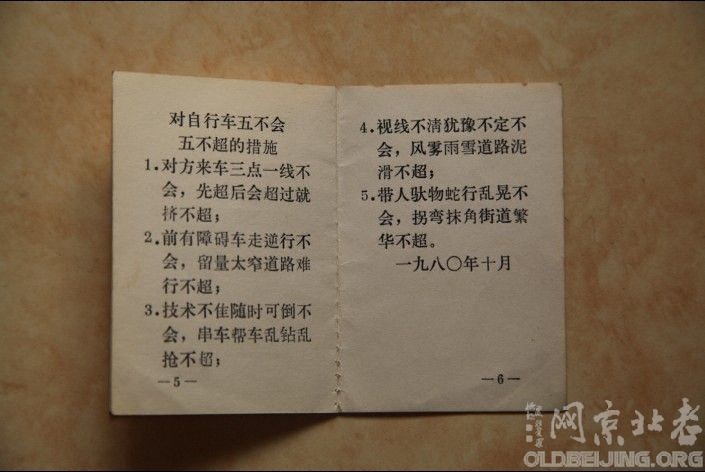 对自行车五不会
五不超的措施
1.对方来车三点一线不
会，先超后会超过就
挤不超；
2.前有障碍车走逆行不
会，留量太窄道路难
行不超；
3.技术不佳随时可倒不
会，串车帮车乱钻乱
抢不超；
—5—
4.视线不清犹豫不定不
会，风雾雨雪道路泥
滑不超；
5.带人驮物蛇行乱晃不
会，拐弯抹角街道繁
华不超。
一九八〇年十月
—6—
网京北老
OLDBEIJING.ORG